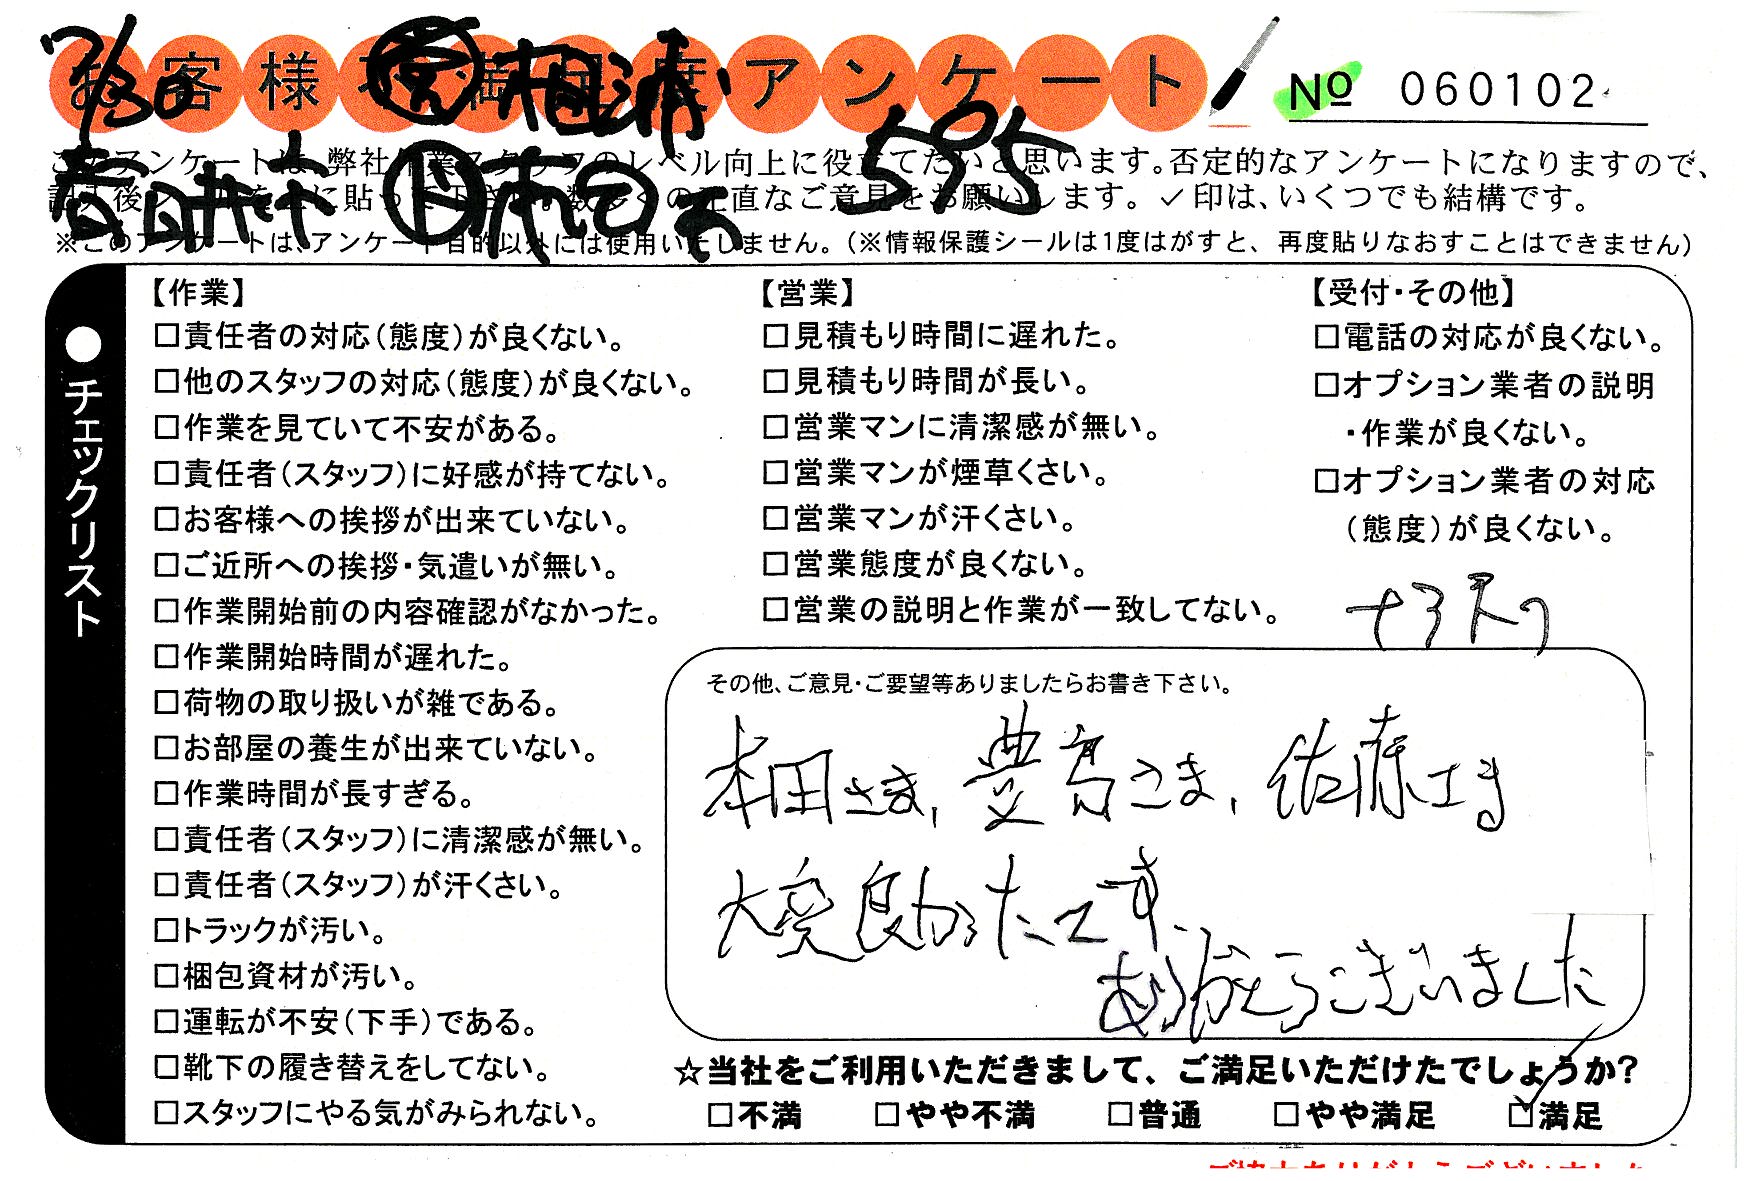 お客様不満足度アンケート
No 060102
7/30 営 相浦
このアンケートは、弊社作業スタッフのレベル向上に役立てたいと思います。否定的なアンケートになりますので、
記入後シールを上に貼って下さい。数多くの正直なご意見をお願いします。✓印は、いくつでも結構です。
※このアンケートは、アンケート目的以外には使用いたしません。（※情報保護シールは1度はがすと、再度貼りなおすことはできません）
●チェックリスト
【作業】
□責任者の対応（態度）が良くない。
□他のスタッフの対応（態度）が良くない。
□作業を見ていて不安がある。
□責任者（スタッフ）に好感が持てない。
□お客様への挨拶が出来ていない。
□ご近所への挨拶・気遣いが無い。
□作業開始前の内容確認がなかった。
□作業開始時間が遅れた。
□荷物の取り扱いが雑である。
□お部屋の養生が出来ていない。
□作業時間が長すぎる。
□責任者（スタッフ）に清潔感が無い。
□責任者（スタッフ）が汗くさい。
□トラックが汚い。
□梱包資材が汚い。
□運転が不安（下手）である。
□靴下の履き替えをしてない。
□スタッフにやる気がみられない。
【営業】
□見積もり時間に遅れた。
□見積もり時間が長い。
□営業マンに清潔感が無い。
□営業マンが煙草くさい。
□営業マンが汗くさい。
□営業態度が良くない。
□営業の説明と作業が一致してない。
【受付・その他】
□電話の対応が良くない。
□オプション業者の説明
・作業が良くない。
□オプション業者の対応
（態度）が良くない。
その他、ご意見・ご要望等ありましたらお書き下さい。
本田さま、豊島さま、佐藤さま
大変良かったです。
ありがとうございました
☆当社をご利用いただきまして、ご満足いただけたでしょうか?
□不満 □やや不満 □普通 □やや満足 ☑満足